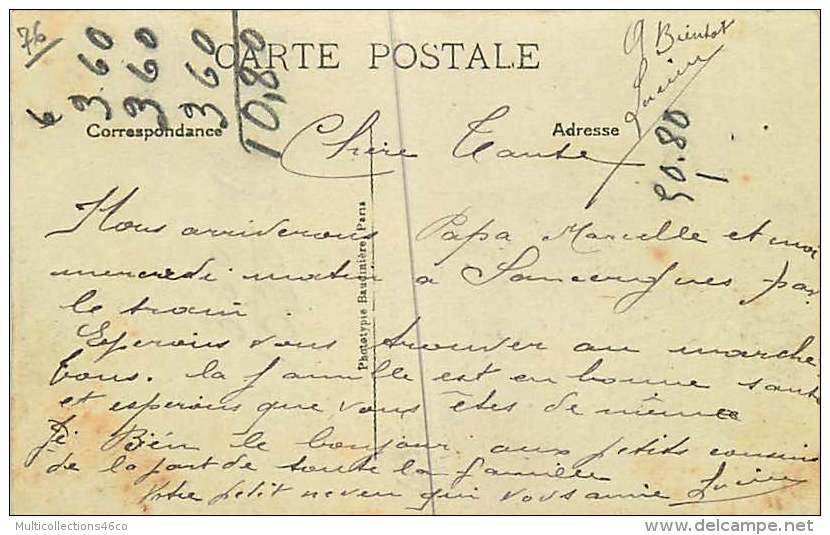 76
6
3 60
3 60
3 60
10,80
CARTE POSTALE
A Bientot
Lucien
90.80
Correspondance
Adresse
Chère Tante
Nous arriverons Papa Marcelle et moi
mercredi matin a Sancergues par
le train
Esperons vous trouver au marche
tous. la famille est en bonne sante
et esperons que vous êtes de même
Bien le bonjour aux petits cousins
de la part de toute la famille
Votre petit neveu qui vous aime Lucien
Phototypie Baudinière, Paris
Multicollections46co
delcampe.net